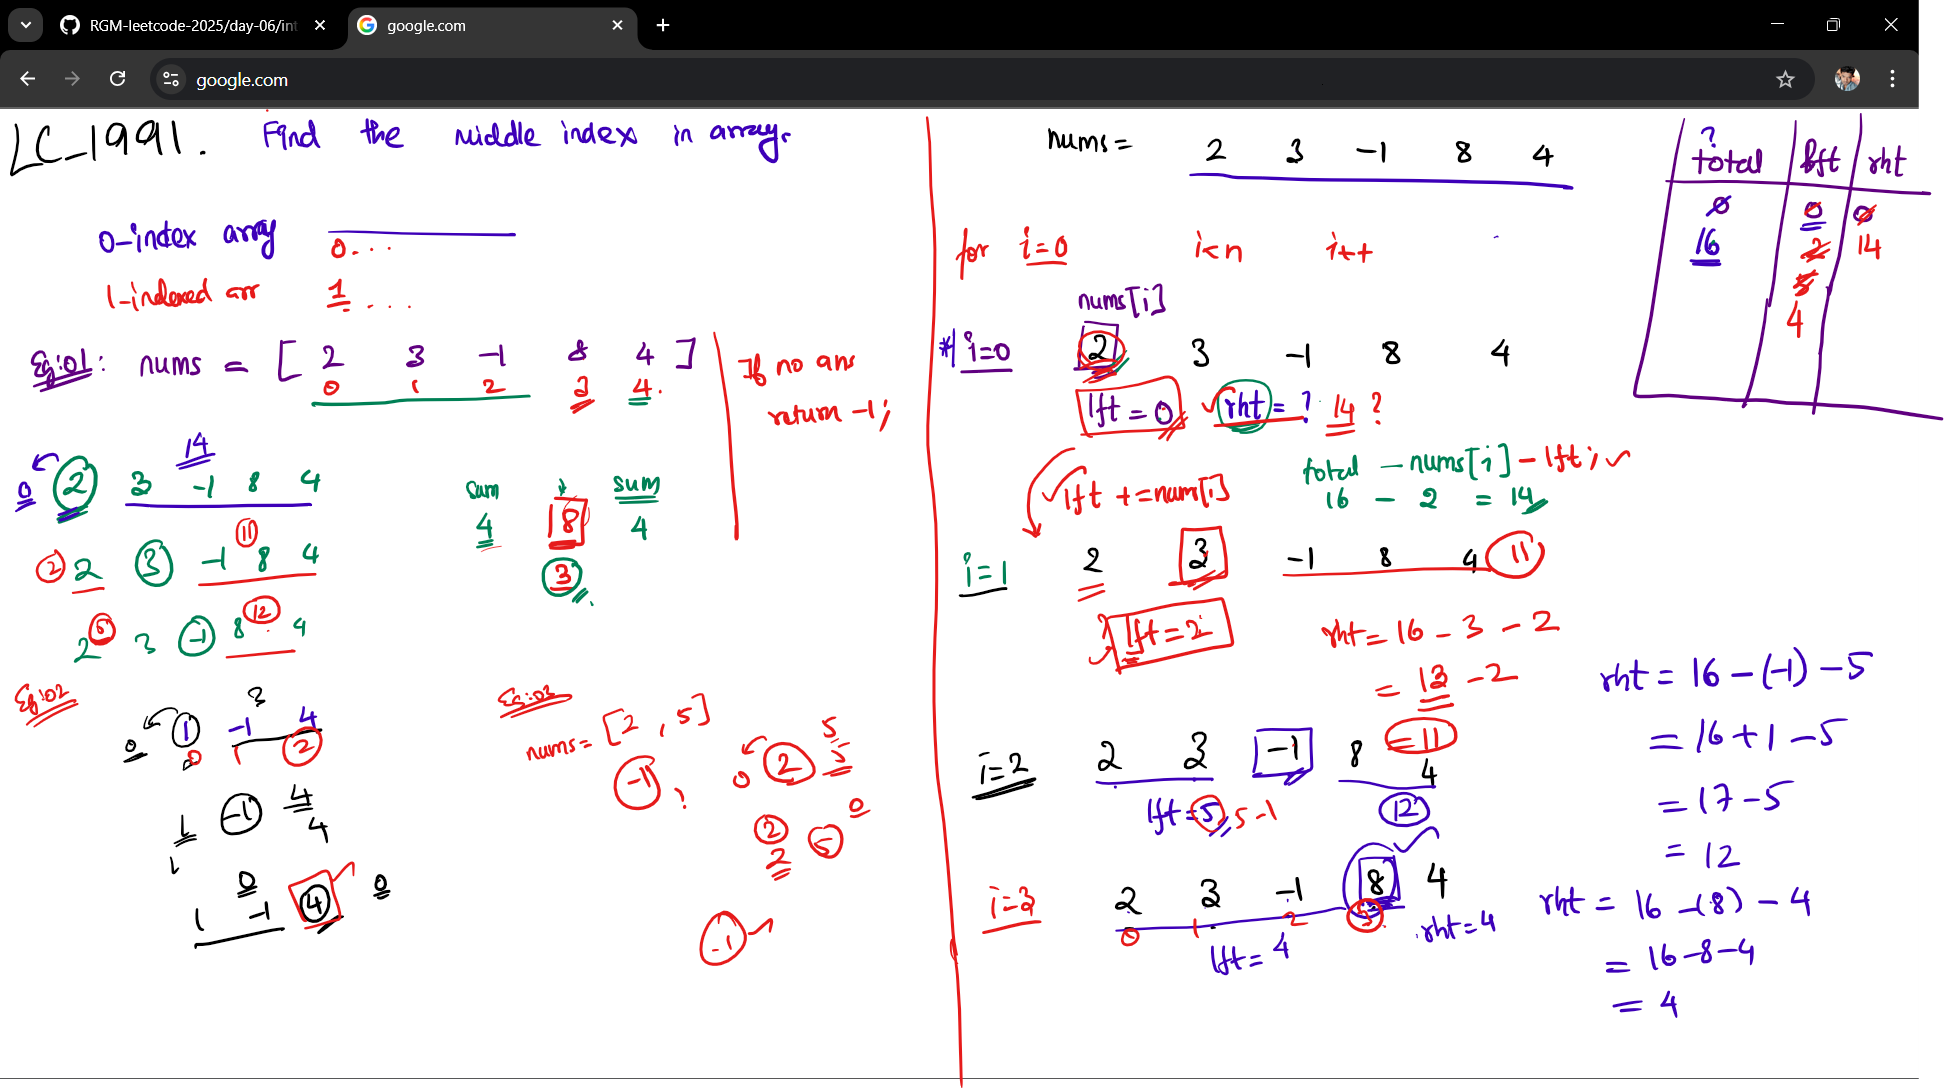 RGM-leetcode-2025/day-06/int
google.com
google.com
LC_1991. Find the middle index in array.
0-index array
0 . . .
1-indexed arr 1 . . .
Eg:01: nums = [ 2 3 -1 8 4 ]
0 1 2 3 4.
If no ans
return -1;
14
0 2 3 -1 8 4
11
2 2 3 -1 8 4
5 12
2 3 -1 8 4
sum sum
4 8 4
3
Eg:02
3
0 1 -1 4
0 1 2
1 -1 4
1 4
0
1 -1 4 0
Eg:03
nums = [2 , 5]
-1 ?
5
0 2 5
2 5 0
2
-1
nums = 2 3 -1 8 4
for i=0 i<n i++
nums[i]
* i=0 2 3 -1 8 4
lft = 0 rht = ? 14 ?
total - nums[i] - lft;
16 - 2 = 14
lft += num[i]
i=1 2 3 -1 8 4 11
lft = 2
rht = 16 - 3 - 2
= 13 - 2
= 11
i=2 2 3 -1 8 4
lft = 5, 5-1 12
i=3 2 3 -1 8 4
0 1 2
lft = 4 rht = 4
?
total lft rht
0 0 0
16 2 14
5
4
rht = 16 - (-1) - 5
= 16 + 1 - 5
= 17 - 5
= 12
rht = 16 - (8) - 4
= 16 - 8 - 4
= 4